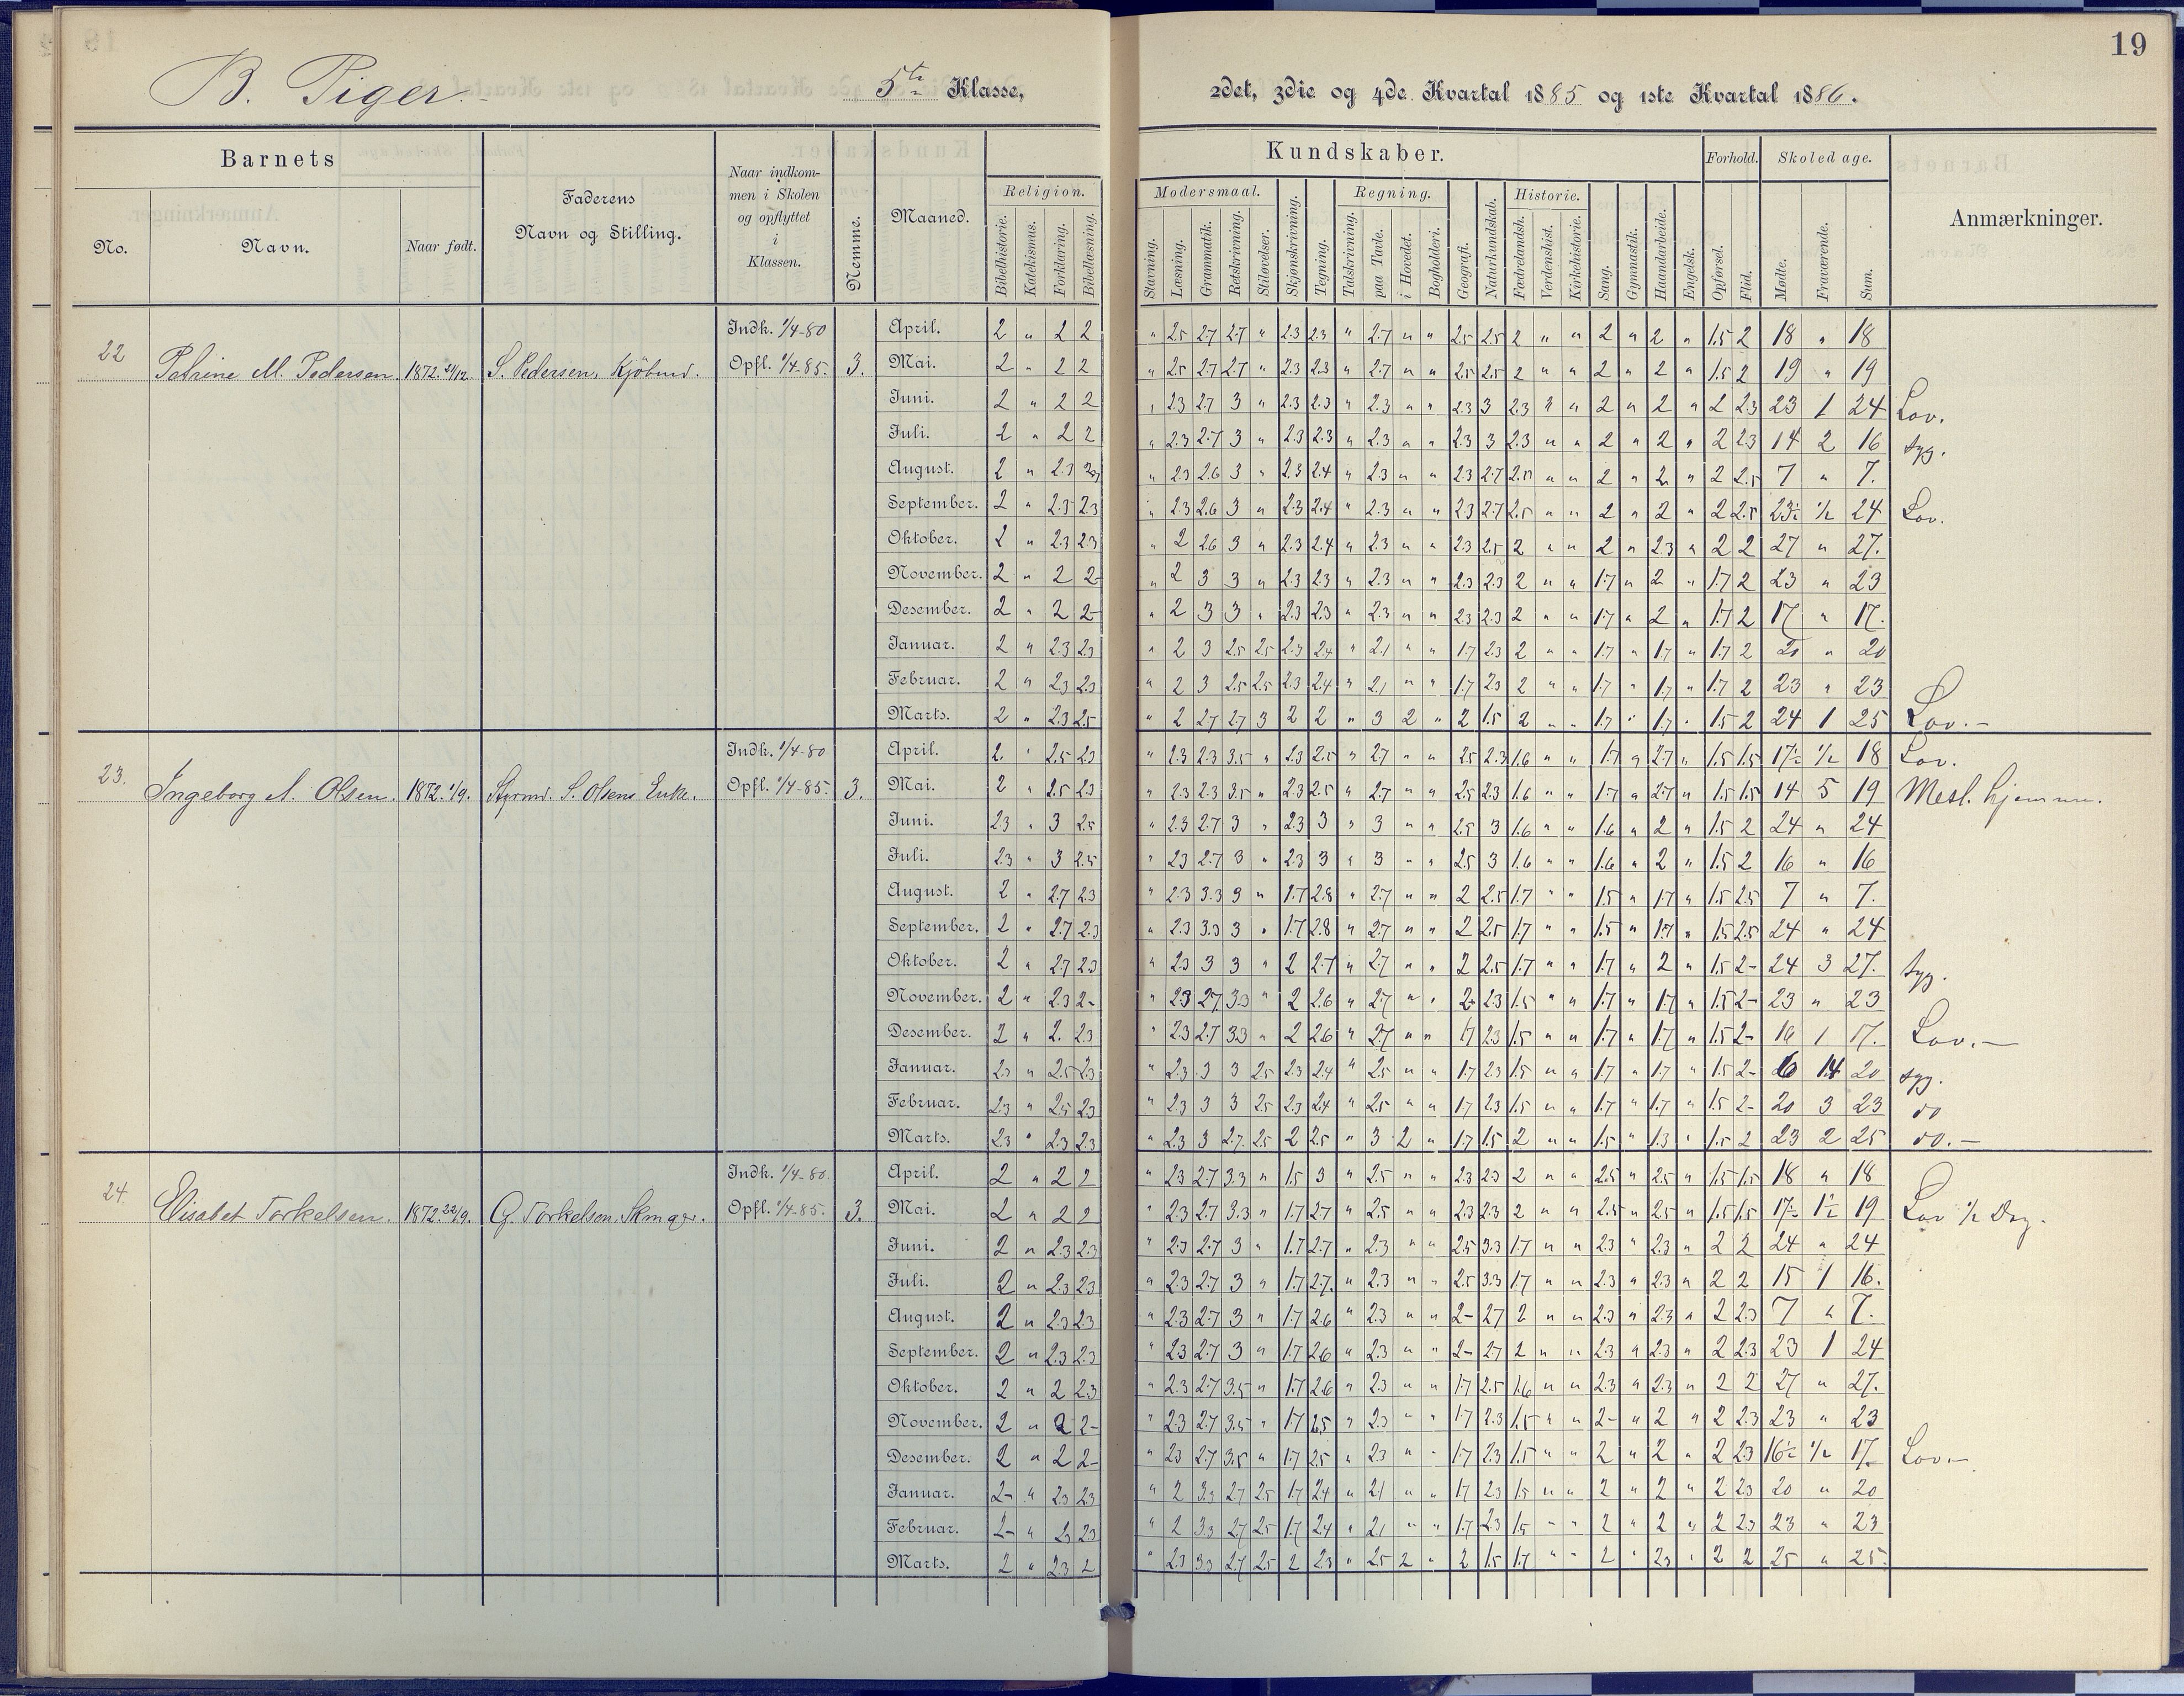 19
B. Piger.
5te Klasse,
2det, 3die og 4de Kvartal 1885 og 1ste Kvartal 1886.
Barnets
No.
Navn.
Naar født.
Faderens
Navn og Stilling.
Naar indkom-
men i Skolen
og opflyttet
i
Klassen.
Nemme.
Maaned.
Religion.
Bibelhistorie.
Katekismus.
Forklaring.
Bibellæsning.
Kundskaber.
Modersmaal.
Stavning.
Læsning.
Grammatik.
Retskrivning.
Stiløvelser.
Skjønskrivning.
Tegning.
Regning.
Talskrivning.
paa Tavle.
i Hovedet.
Bogholderi.
Geografi.
Naturkundskab.
Historie.
Fædrelandsh.
Verdenshist.
Kirkehistorie.
Sang.
Gymnastik.
Haandarbeide.
Engelsk.
Forhold.
Opførsel.
Flid.
Skoledage.
Mødte.
Fraværende.
Sum.
Anmærkninger.
22 Petrine M. Pedersen 1872. 21/12. S. Pedersen, Kjöbmd. Indk. 1/4-80 Opfl. 1/4-85. 3.
April. 2 " 2 2 " 2.5 2.7 2.7 " 2.3 2.3 " 2.7 " " 2.5 2.5 2 " " 2 " 2 " 1.5 2 18 " 18
Mai. 2 " 2 2 " 2.5 2.7 2.7 " 2.3 2.3 " 2.7 " " 2.5 2.5 2 " " 2 " 2 " 1.5 2 19 " 19
Juni. 2 " 2 2 " 2.3 2.7 3 " 2.3 2.3 " 2.3 " " 2.3 3 2.3 " " 2 " 2 " 2 2.3 23 1 24 Lov.
Juli. 2 " 2 2 " 2.3 2.7 3 " 2.3 2.3 " 2.3 " " 2.3 3 2.3 " " 2 " 2 " 2 2.3 14 2 16 syg.
August. 2 " 2.3 " 2.3 2.6 3 " 2.3 2.4 " 2.3 " " 2.3 2.7 2.5 " " 2 " 2 " 2 2.5 7 " 7.
September. 2 " 2.3 2.3 " 2.3 2.6 3 " 2.3 2.4 " 2.3 " " 2.3 2.7 2.5 " " 2 " 2 " 2 2.5 23½ ½ 24 Lov.
Oktober. 2 " 2.3 2.3 " 2 2.6 3 " 2.3 2.4 " 2.3 " " 2.3 2.5 2 " " 2 " 2.3 " 2 2 27 " 27.
November. 2 " 2 2- " 2 3 3 " 2.3 2.3 " 2.3 " " 2.3 2.3 2 " " 1.7 " 2 " 1.7 2 23 " 23
Desember. 2 " 2 2- " 2 3 3 " 2.3 2.3 " 2.3 " " 2.3 2.3 2 " " 1.7 " 2 " 1.7 2 17 " 17.
Januar. 2 " 2.3 2.3 " 2 3 2.5 2.5 2.3 2.4 " 2.1 " " 1.7 2.3 2 " " 1.7 " 1.7 " 1.7 2 20 " 20
Februar. 2 " 2.3 2.3 " 2 3 2.5 2.5 2.3 2.4 " 2.1 " " 1.7 2.3 2 " " 1.7 " 1.7 " 1.7 2 23 " 23
Marts. 2 " 2.3 2.5 " 2 2.7 2.7 3 2 2 " 3 2 " 2 1.5 2 " " 1.7 " 1.7 " 1.5 2 24 1 25 Lov.-
23. Ingeborg A. Olsen. 1872. 1/9. Styrmd. S. Olsens Enke. Indk. 1/4-80 Opfl. 1/4-85. 3.
April. 2. " 2.5 2.3 " 2.3 2.3 3.5 " 2.3 2.5 " 2.7 " " 2.5 2.3 1.6 " " 1.7 " 2.7 " 1.5 1.5 17½ ½ 18 Lov.
Mai. 2 " 2.5 2.3 " 2.3 2.3 3.5 " 2.3 2.5 " 2.7 " " 2.5 2.3 1.6 " " 1.7 " 2.7 " 1.5 1.5 14 5 19 Mesl. hjemme.
Juni. 2.3 " 3 2.5 " 2.3 2.7 3 " 2.3 3 " 3 " " 2.5 3 1.6 " " 1.6 " 2 " 1.5 2 24 " 24
Juli. 2.3 " 3 2.5 " 2.3 2.7 3 " 2.3 3 " 3 " " 2.5 3 1.6 " " 1.6 " 2 " 1.5 2 16 " 16
August. 2 " 2.7 2.3 " 2.3 3.3 3 " 1.7 2.8 " 2.7 " " 2 2.5 1.7 " " 1.5 " 1.7 " 1.5 2.5 7 " 7.
September. 2 " 2.7 2.3 " 2.3 3.3 3 " 1.7 2.8 " 2.7 " " 2 2.5 1.7 " " 1.5 " 1.7 " 1.5 2.5 24 " 24
Oktober. 2 " 2.7 2.3 " 2.3 3 3 " 2 2.7 " 2.7 " " 2 2.5 1.7 " " 1.7 " 2 " 1.5 2- 24 3 27. syg.
November. 2 " 2.3 2- " 2.3 2.7 3.3 " 2 2.6 " 2.7 " " 2- 2.3 1.5 " " 1.7 " 1.7 " 1.5 2- 23 " 23
Desember. 2 " 2. 2.3 " 2.3 2.7 3.3 " 2 2.6 " 2.7 " " 1.7 2.3 1.5 " " 1.7 " 1.7 " 1.5 2- 16 1 17. Lov.-
Januar. 2.3 " 2.5 2.3 " 2.3 3 3 2.5 2.3 2.4 " 2.5 " " 1.7 2.3 1.5 " " 1.7 " 1.7 " 1.5 2- 6 14 20 syg.
Februar. 2.3 " 2.5 2.3 " 2.3 3 3 2.5 2.3 2.4 " 2.5 " " 1.7 2.3 1.5 " " 1.7 " 1.7 " 1.5 2- 20 3 23 do
Marts. 2.3 " 2.3 2.3 " 2.3 3 2.7 2.5 2 2.5 " 3 2 " 1.7 1.5 2 " " 1.5 " 1.3 " 1.5 2 23 2 25 do.-
24. Elisabet Torkelsen. 1872. 22/9. G. Torkelsen. Indk. 1/4-80. Opfl. 1/4-85. 3.
April. 2 " 2 2 " 2.3 2.7 3.3 " 1.5 3 " 2.5 " " 2.3 2.3 2 " " 2.5 " 2.5 " 1.5 1.5 18 " 18
Mai. 2 " 2 2 " 2.3 2.7 3.3 " 1.7 2.7 " 2.5 " " 2.3 2.3 2 " " 2.5 " 2.5 " 1.5 1.5 17½ 1½ 19 Lov ½ Dag.
Juni. 2 " 2.3 2.3 " 2.3 2.7 3 " 1.7 2.7 " 2.3 " " 2.5 3.3 1.7 " " 2.3 " 2.3 " 2 2 24 " 24
Juli. 2 " 2.3 2.3 " 2.3 2.7 3 " 1.7 2.7. " 2.3 " " 2.5 3.3 1.7 " " 2.3 " 2.3 " 2 2 15 1 16.
August. 2 " 2.3 2.3 " 2.3 2.7 3 " 1.7 2.6 " 2.3 " " 2- 2.7 2 " " 2.3 " 2.3 " 2 2.3 7 " 7.
September. 2 " 2.3 2.3 " 2.3 2.7 3 " 1.7 2.6 " 2.3 " " 2- 2.7 2 " " 2.3 " 2.3 " 2 2.3 23 1 24
Oktober. 2 " 2 2.3 " 2.3 2.7 3.5 " 1.7 2.6 " 2.3 " " 1.7 2.5 1.6 " " 2.3 " 2.3 " 2 2 27 " 27.
November. 2 " 2 2- " 2.3 2.7 3.5 " 1.7 2.5 " 2.3 " " 1.7 2.3 1.5 " " 2- " 2 " 2 2.3 23 " 23
Desember. 2 " 2 2- " 2.3 2.7 3.5 " 1.7 2.5 " 2.3 " " 1.7 2.3 1.5 " " 2 " 2 " 2 2.3 16½ ½ 17. Lov.-
Januar. 2- " 2.3 2.3 " 2 3.3 2.7 2.5 1.7 2.4 " 2.1 " " 1.7 2.3 1.5 " " 2 " 2 " 2 2.3 20 " 20
Februar. 2- " 2.3 2.3 " 2 3.3 2.7 2.5 1.7 2.4 " 2.1 " " 1.7 2.3 1.5 " " 2 " 2 " 2 2.3 23 " 23
Marts. 2 " 2.3 2 " 2.3 3.3 2.7 2.5 2 2.3 " 2.5 2 " 2 1.5 1.7 " " 2 " 2.3 " 2 2 25 " 25.